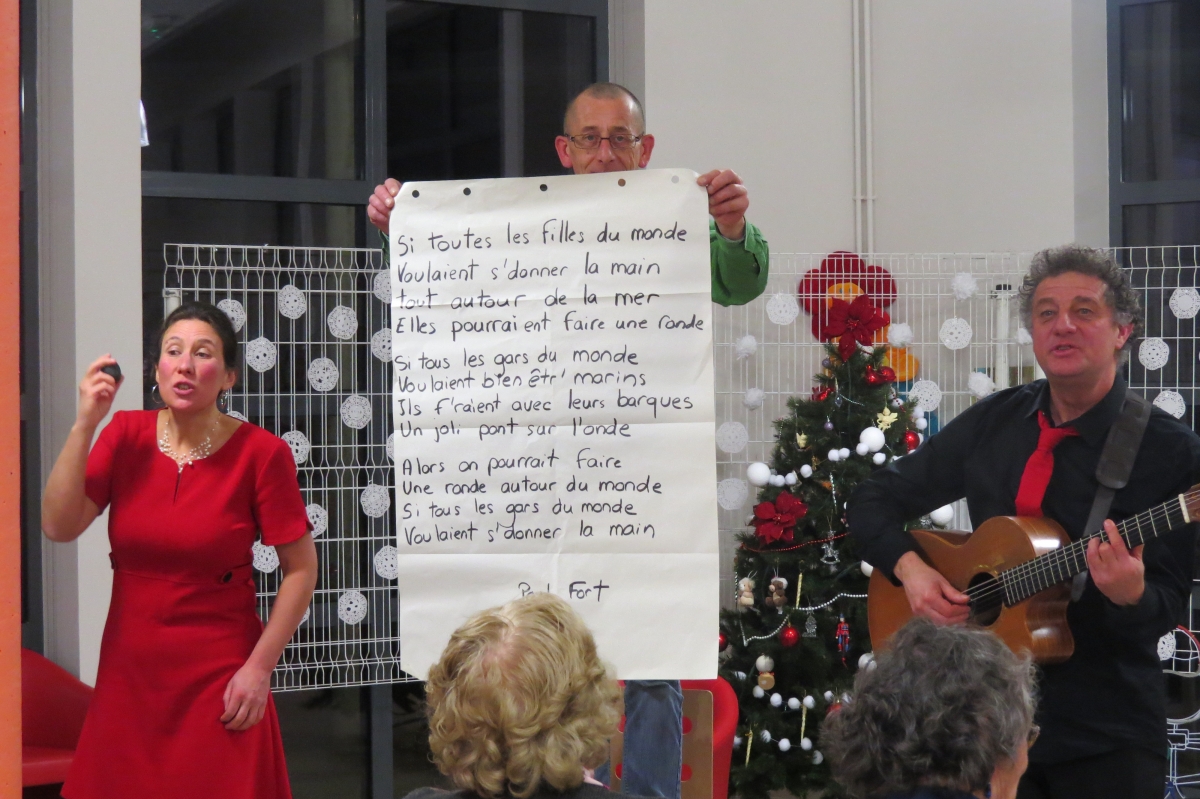 Si toutes les filles du monde
Voulaient s'donner la main
tout autour de la mer
Elles pourraient faire une ronde
Si tous les gars du monde
Voulaient bien êtr' marins
Ils f'raient avec leurs barques
Un joli pont sur l'onde
Alors on pourrait faire
Une ronde autour du monde
Si tous les gars du monde
Voulaient s'donner la main
Fort